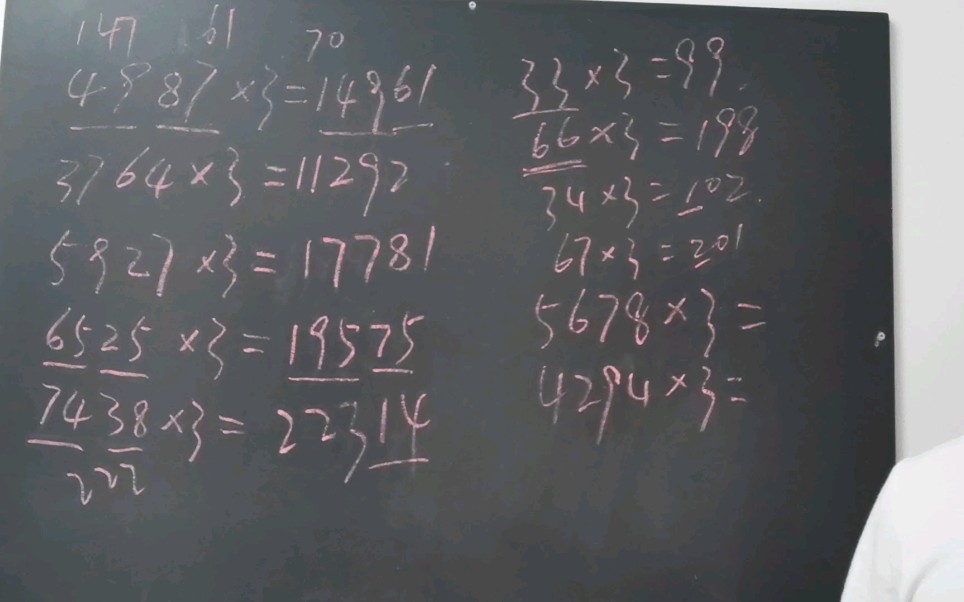 147 61 70
4987×3=14961
3764×3=11292
5927×3=17781
6525×3=19575
7438×3=22314
222
33×3=99.
66×3=198
34×3=102.
67×3=201
5678×3=
4294×3=